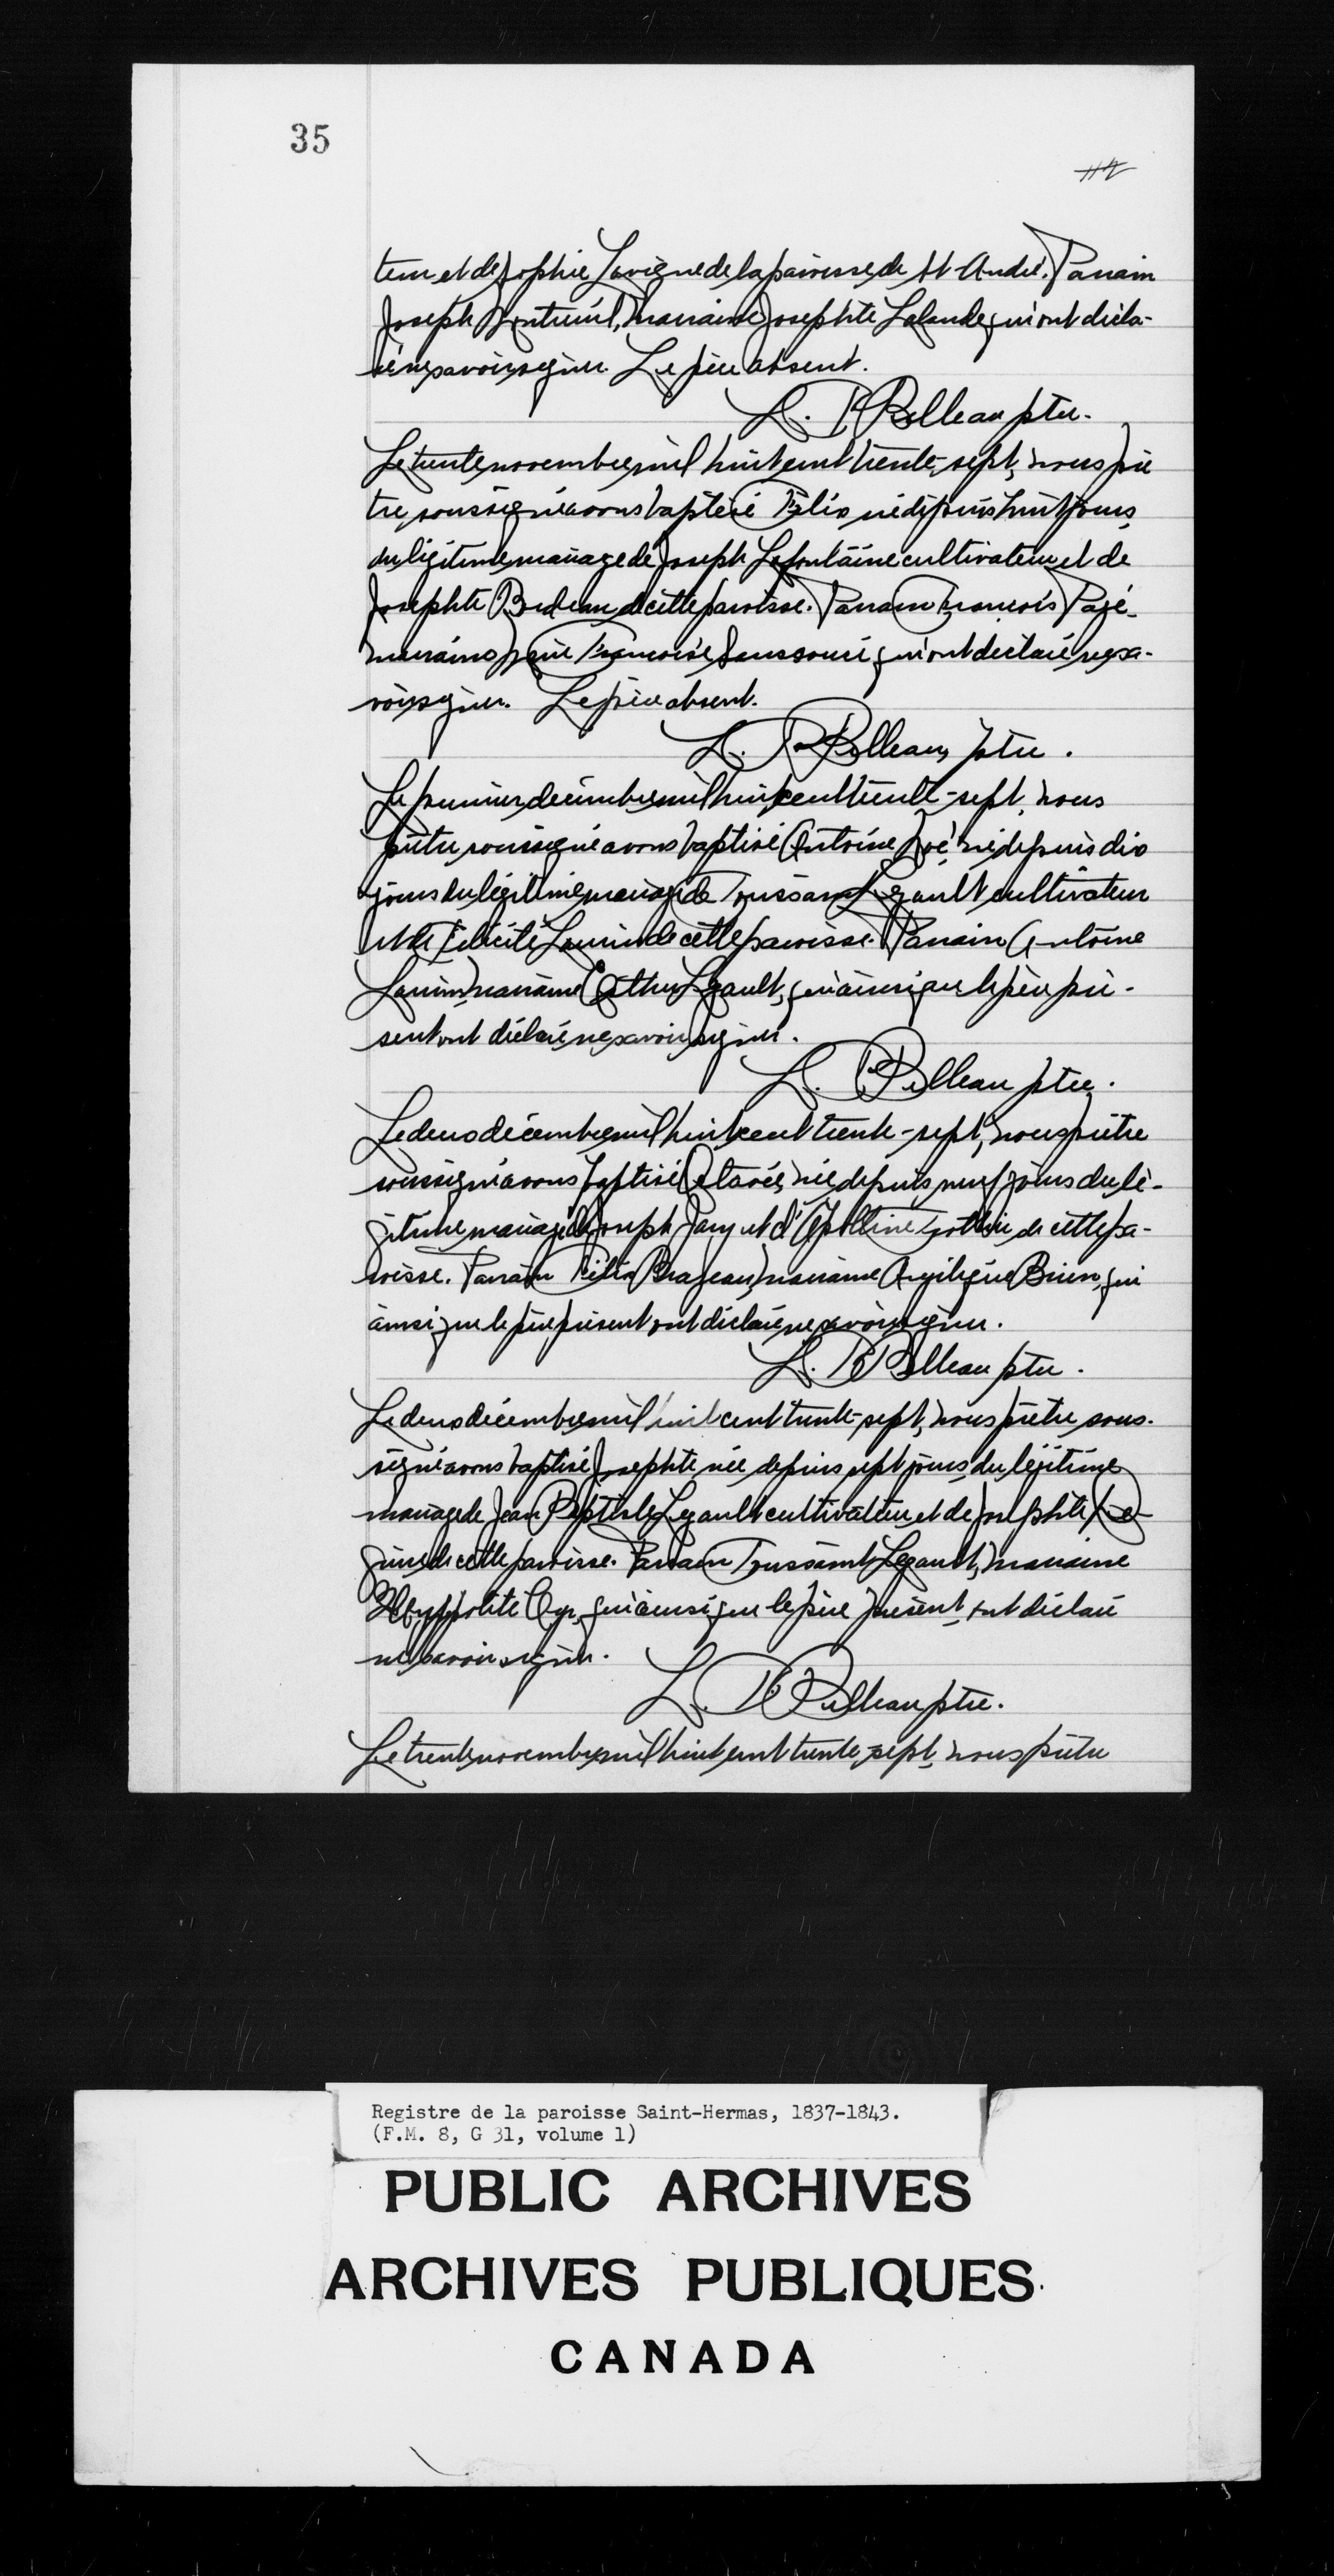 35
teur et de Sophie Lavigne de la paroisse de St André. Parrain
Joseph Montreuil, marraine Josephte Lalande, qui ont décla-
ré ne savoir signer. Le père absent.
ptre.
Le trente novembre mil huit cent trente-sept, nous prê
tre soussigné avons baptisé Félix né depuis huit jours
du légitime mariage de Joseph Lafontaine cultivateur et de
Josephte de cette paroisse. Parrain François Pagé
marraine Françoise Sanssouci qui ont déclaré ne sa-
voir signer. Le père absent.
ptre.
Le premier décembre mil huit cent trente-sept, nous
prêtre soussigné avons baptisé Antoine né depuis dix
jours du légitime mariage de Toussaint Legault cultivateur
et de Félicité Laurin de cette paroisse. Parrain Antoine
Laurin, marraine Esther Legault, qui ainsi que le père pré-
sent ont déclaré ne savoir signer.
ptre.
Le deux décembre mil huit cent trente-sept, nous prêtre
soussigné avons baptisé née depuis neuf jours du lé-
gitime mariage de Joseph et d'Apolline de cette pa-
roisse. Parrain Félix Brazeau, marraine Angélique Brien, qui
ainsi que le père présent ont déclaré ne savoir signer.
ptre.
Le deux décembre mil huit cent trente-sept, nous prêtre sous-
signé avons baptisé Josephte née depuis sept jours du légitime
mariage de Jean Baptiste Legault cultivateur et de Josephte
de cette paroisse. Parrain Toussaint Legault, marraine
Hyppolite Cyr, qui ainsi que le père présent, ont déclaré
ne savoir signer.
ptre.
Le trente novembre mil huit cent trente-sept, nous prêtre
Registre de la paroisse Saint-Hermas, 1837-1843.
(F.M. 8, G 31, volume 1)
PUBLIC ARCHIVES
ARCHIVES PUBLIQUES
CANADA